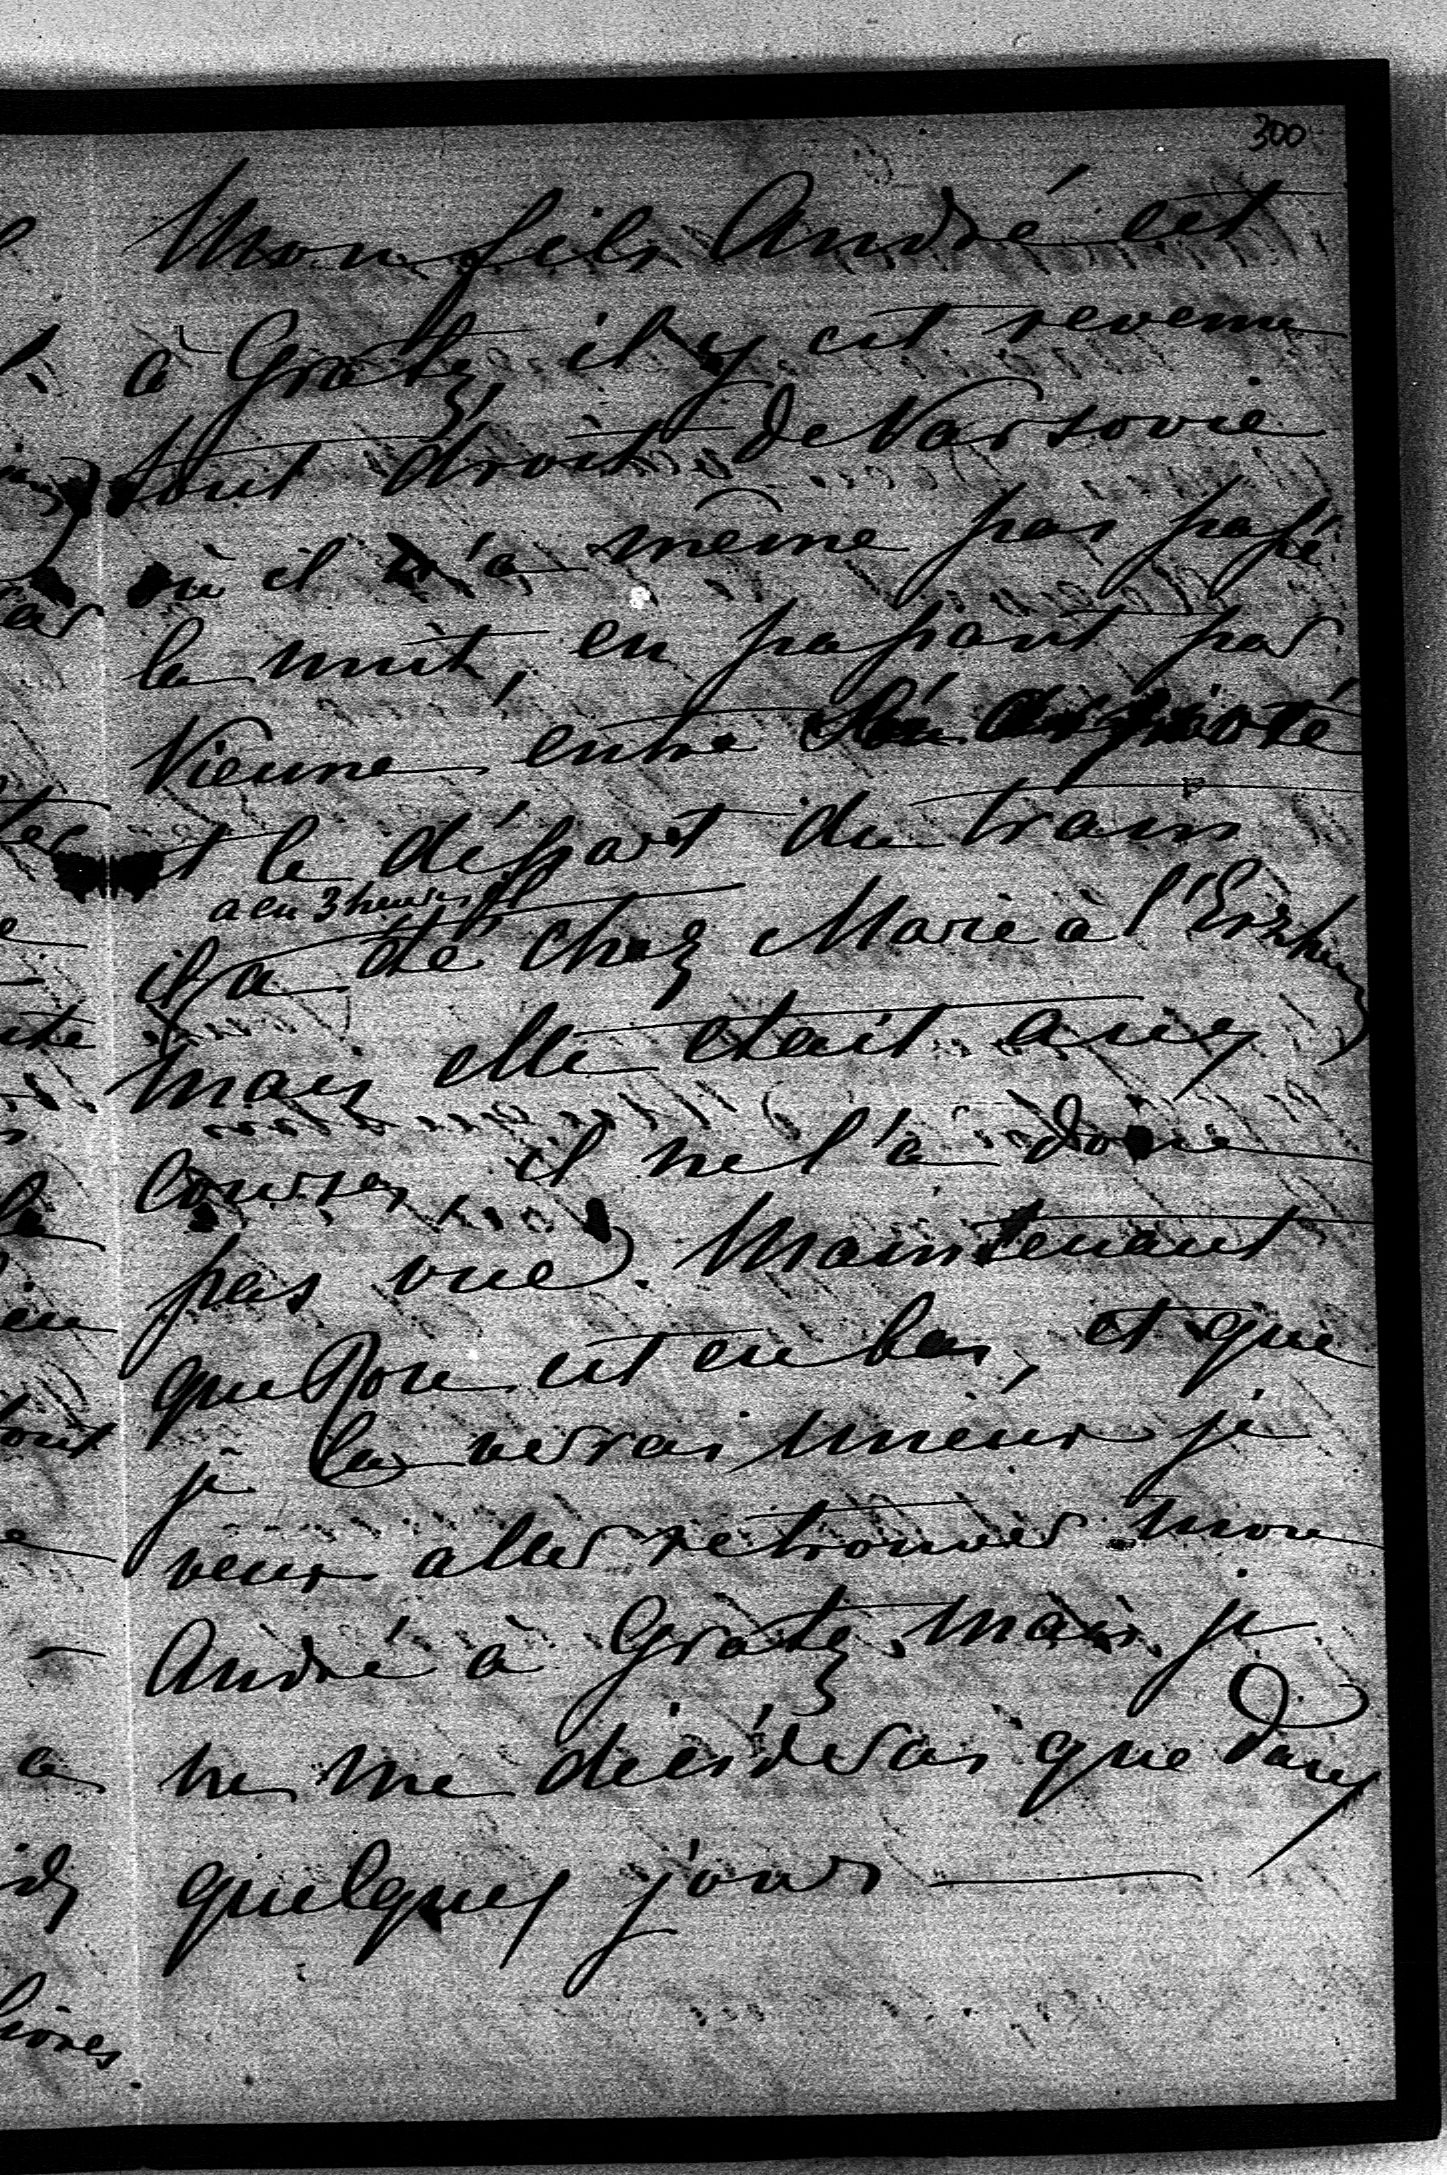 300
Mon fils André est
à Gratz, il y est revenu
tout droit de Varsovie
où il n'a même pas passé
la nuit, en passant par
Vienne, entre
et le départ du train
a eu 3 heures et
il a été chez Marie à l'Erzher
mais elle était aux
courses, il ne l'a donc
pas vue. Maintenant
que Rose est en bas, et que
je la verrai mieux je
veux aller retrouver mon
André à Gratz, mais je
ne me déciderai que dans
quelques jours —